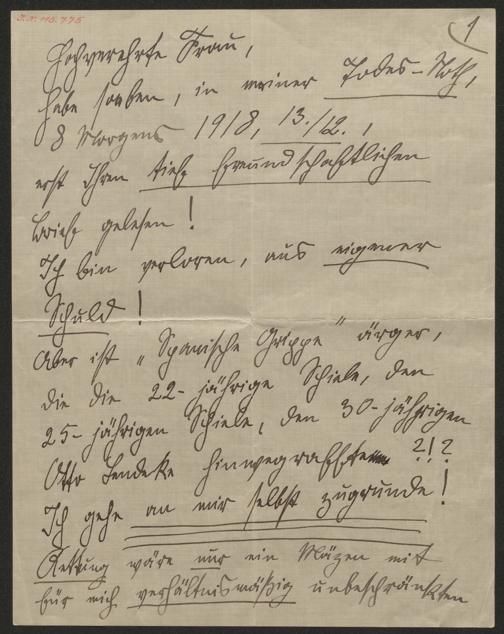 J.N. 115.775
1
Hochverehrte Frau,
habe soeben, in meiner Todes-Noth,
8 Morgens 1918, 13./12.,
erst Ihren tief freundschaftlichen
Brief gelesen!
Ich bin verloren, aus eigener
Schuld!
Aber ist „Spanische Grippe" ärger,
die die 22-jährige Schiele, den
25-jährigen Schiele, den 30-jährigen
Otto Lendecke hinwegrafften ?!?
Ich gehe an mir selbst zugrunde!
Rettung wäre nur ein Mäzen mit
für mich verhältnismäßig unbeschränkten